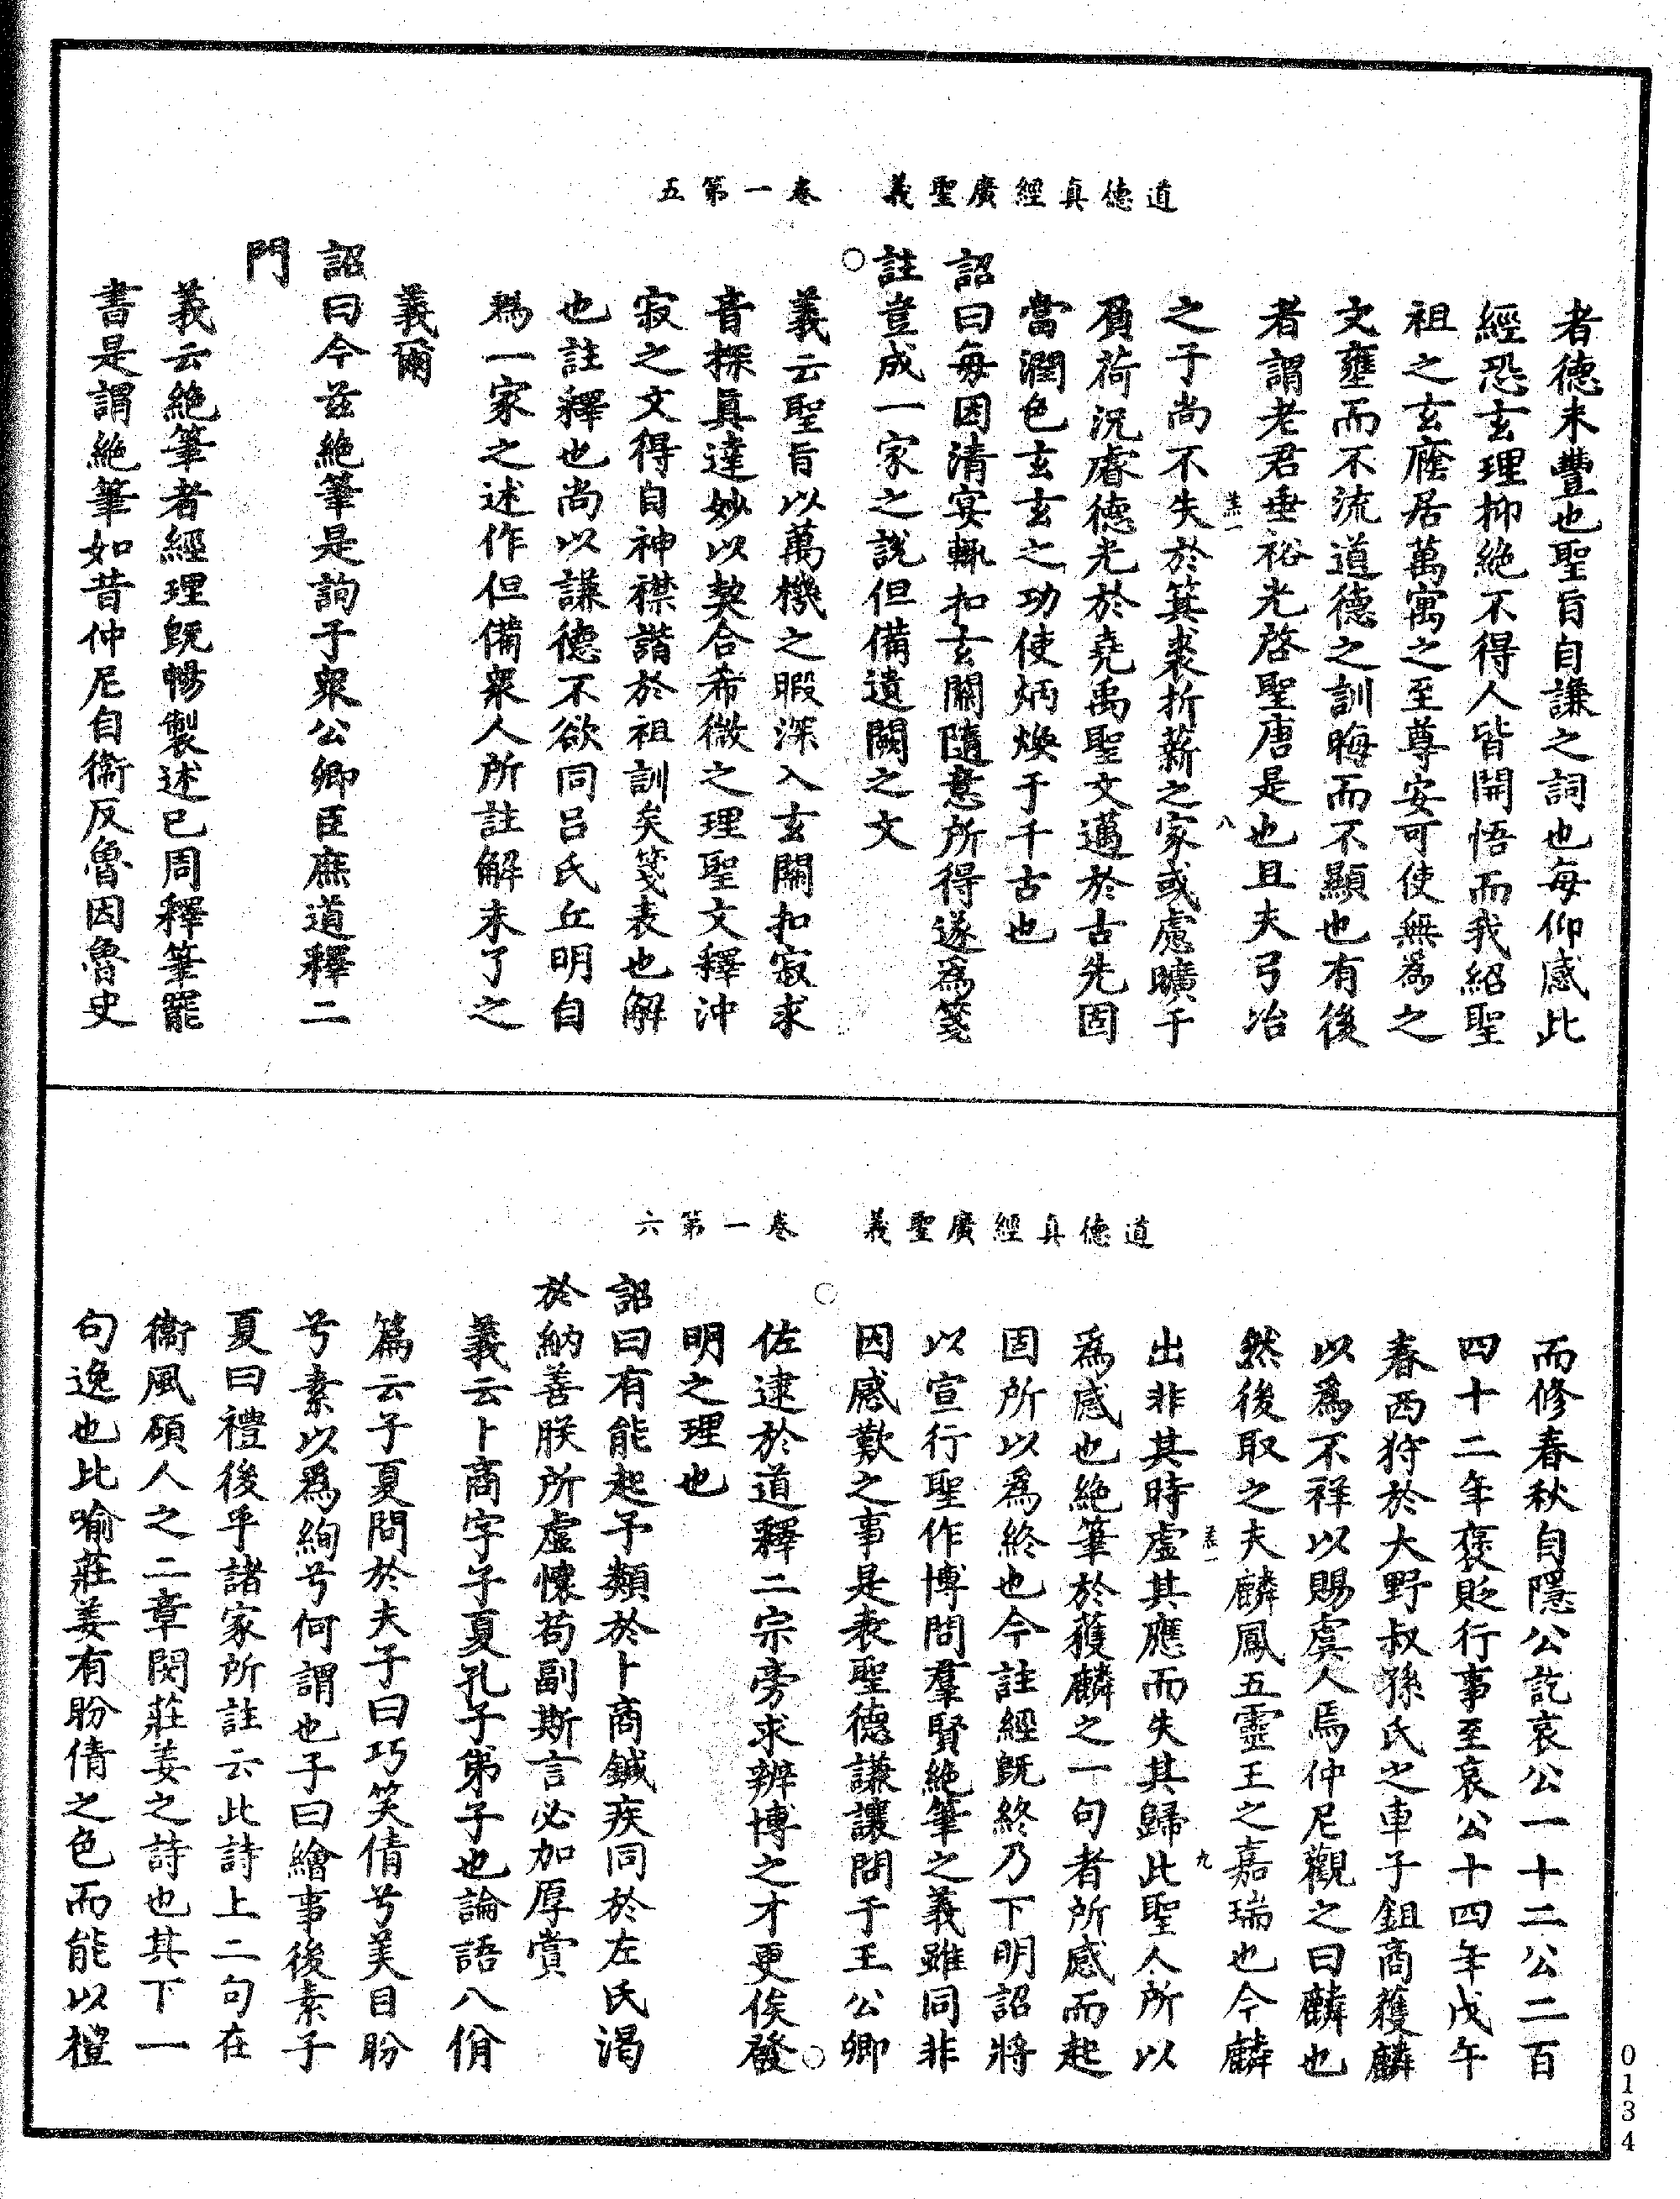 道德真經廣聖義　卷一第五
者德未豐也聖旨自謙之詞也每仰感此
經恐玄理抑絕不得人皆開悟而我紹聖
祖之玄廕居萬寓之至尊安可使無爲之
文壅而不流道德之訓晦而不顯也有後
者謂老君垂裕光啓聖唐是也且夫弓冶
八
之子尚不失於箕裘折薪之家或慮曠于
負荷況睿德光於堯禹聖文邁於古先固
當潤色玄玄之功使炳煥于千古也
詔曰每因清宴輒扣玄關隨意所得遂爲箋
註豈成一家之說但備遺闕之文
義云聖旨以萬機之暇深入玄關扣寂求
音探真達妙以契合希微之理聖文釋沖
寂之文得自神襟諧於祖訓矣箋表也解
也註釋也尚以謙德不欲同呂氏丘明自
爲一家之述作但備衆人所註解未了之
義爾
詔曰今茲絕筆是詢于衆公卿臣庶道釋二
門
義云絕筆者經理既暢製述已周釋筆罷
書是謂絕筆如昔仲尼自衞反魯因魯史
道德真經廣聖義　卷一第六
而修春秋自隱公訖哀公一十二公二百
四十二年褒貶行事至哀公十四年戊午
春西狩於大野叔孫氏之車子鉏商獲麟
以爲不祥以賜虞人焉仲尼觀之曰麟也
然後取之夫麟鳳五靈王之嘉瑞也今麟
九
出非其時虛其應而失其歸此聖人所以
爲感也絕筆於獲麟之一句者所感而起
固所以爲終也今註經既終乃下明詔將
以宣行聖作博問羣賢絕筆之義雖同非
因感歎之事是表聖德謙讓問于王公卿
佐逮於道釋二宗旁求辨博之才更俟發
明之理也
詔曰有能起予類於卜商鍼疾同於左氏渴
於納善朕所虛懷苟副斯言必加厚賞
義云卜商字子夏孔子弟子也論語八佾
篇云子夏問於夫子曰巧笑倩兮美目盼
兮素以爲絢兮何謂也子曰繪事後素子
夏曰禮後乎諸家所註云此詩上二句在
衞風碩人之二章閔莊姜之詩也其下一
句逸也比喻莊姜有盼倩之色而能以禮
0134